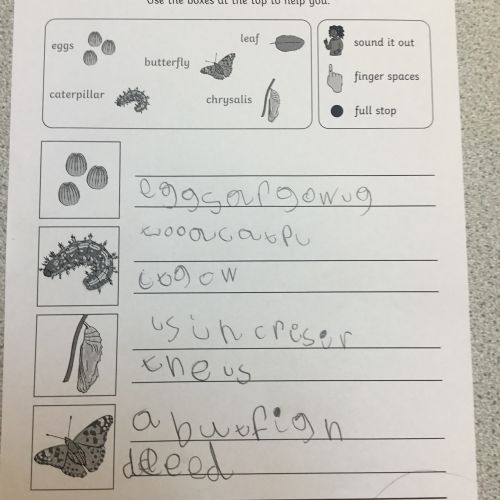 Use the boxes at the top to help you.
eggs
leaf
butterfly
caterpillar
chrysalis
sound it out
finger spaces
full stop
eggsargowug
cogow
usincreser
theus
abutfign
deed